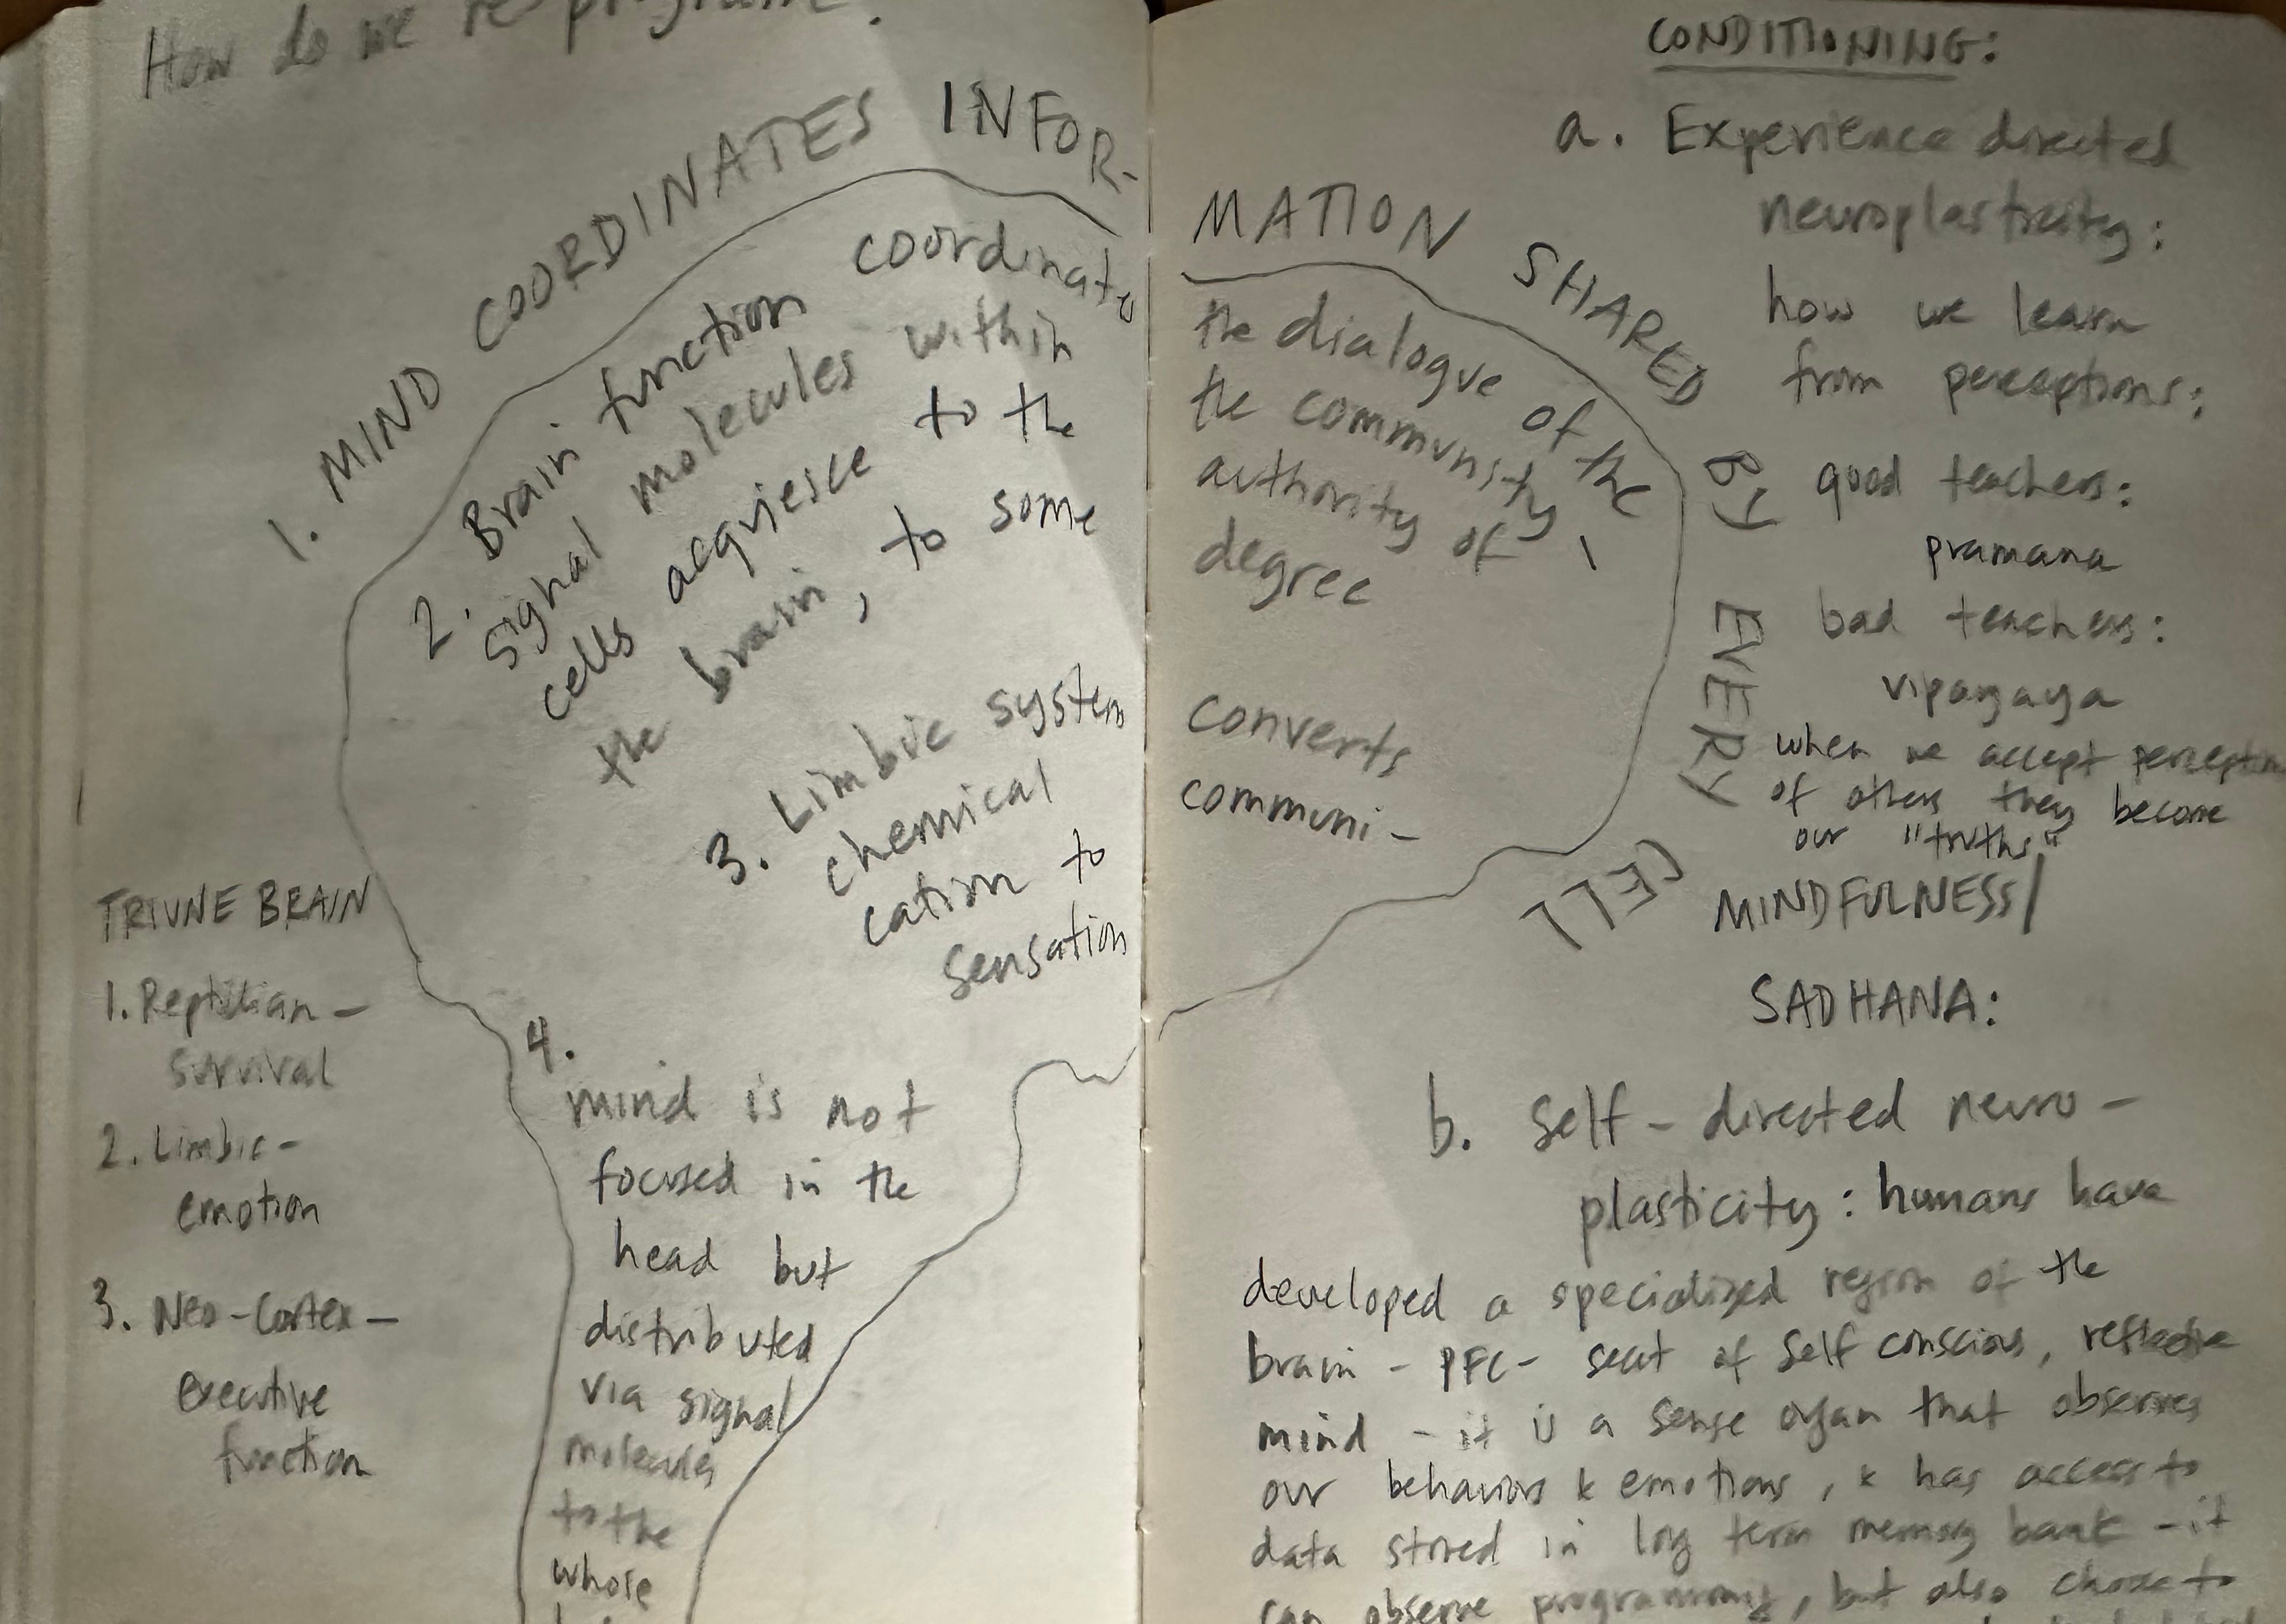 How do we re-program.
1. MIND COORDINATES INFOR-
MATION SHARED BY EVERY CELL
2. Brain function coordinates
the dialogue of the
signal molecules within
the community,
cells acquiesce to the
authority of
the brain, to some
degree
3. Limbic system
converts
chemical
communi-
cation to
sensation
4.
mind is not
focused in the
head but
distributed
via signal
molecules
to the
whole
TRIUNE BRAIN
1. Reptilian -
survival
2. Limbic -
emotion
3. Neo-Cortex -
executive
function
CONDITIONING:
a. Experience directed
neuroplasticity:
how we learn
from perceptions;
good teachers:
pramana
bad teachers:
vipayaya
when we accept perception
of others they become
our "truths"
MINDFULNESS/
SADHANA:
b. Self-directed neuro-
plasticity: humans have
developed a specialized region of the
brain - PFC - seat of self conscious, reflective
mind - it is a sense organ that observes
our behaviors & emotions, & has access to
data stored in long term memory bank - it
can observe programming, but also choose to